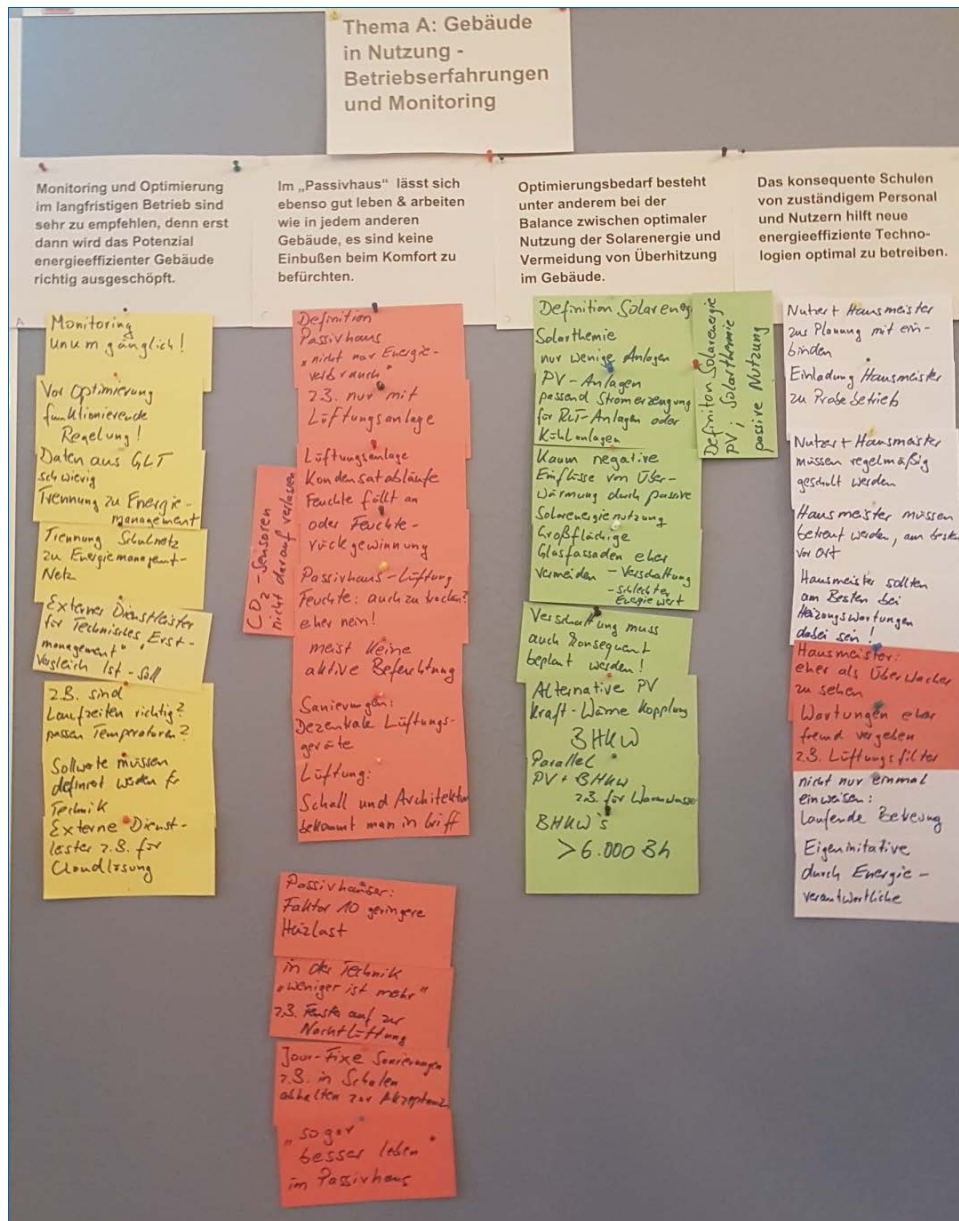 Thema A: Gebäude
in Nutzung -
Betriebserfahrungen
und Monitoring
Monitoring und Optimierung
im langfristigen Betrieb sind
sehr zu empfehlen, denn erst
dann wird das Potenzial
energieeffizienter Gebäude
richtig ausgeschöpft.
Monitoring
unumgänglich!
Vor Optimierung
funktionierende
Regelung!
Daten aus GLT
schwierig
Trennung zu Energie-
management
Trennung Schulnetz
zu Energiemanagement-
Netz
Externer Dienstleister
für Technisches
management"
Vergleich Ist - Soll
z.B. sind
Laufzeiten richtig?
passen Temperaturen?
Sollwerte müssen
definiert werden für
Technik
Externe Dienst-
leister z.B. für
Cloudlösung
Im „Passivhaus“ lässt sich
ebenso gut leben & arbeiten
wie in jedem anderen
Gebäude, es sind keine
Einbußen beim Komfort zu
befürchten.
Definition
Passivhaus
„nicht nur Energie-
verbrauch"
z.B. nur mit
Lüftungsanlage
Lüftungsanlage
Kondensatabläufe
Feuchte fällt an
oder Feuchte-
rückgewinnung
CO2 - Sensoren
nicht darauf verlassen
Passivhaus-Lüftung
Feuchte: auch zu trocken?
eher nein!
meist keine
aktive Befeuchtung
Sanierungen:
Dezentrale Lüftungs-
geräte
Lüftung:
Schall und Architektur
bekommt man in Griff
Passivhäuser:
Faktor 10 geringere
Heizlast
in der Technik
„weniger ist mehr"
z.B. Fenster auf zur
Nachtlüftung
Jour-Fixe Sanierungen
z.B. in Schulen
abhalten zur Akzeptanz
„sogar
besser leben"
im Passivhaus
Optimierungsbedarf besteht
unter anderem bei der
Balance zwischen optimaler
Nutzung der Solarenergie und
Vermeidung von Überhitzung
im Gebäude.
Definition Solarenergi
Solarthemie
nur wenige Anlagen
PV-Anlagen
passend Stromerzeugung
für RLT-Anlagen oder
Kühlanlagen
Definiton Solarenergie
PV, Solarthemie
passive Nutzung
Kaum negative
Einflüsse von Über-
wärmung durch passive
Solarenergienutzung
Großflächige
Glasfassaden eher
vermeiden - Verschattung
- schlechter
Energiewert
Verschattung muss
auch konsequent
beplant werden!
Alternative PV
Kraft-Wärme Kopplung
BHKW
Parallel
PV + BHKW
z.B. für Warmwasser
BHKW's
>6.000 Bh
Das konsequente Schulen
von zuständigem Personal
und Nutzern hilft neue
energieeffiziente Techno-
logien optimal zu betreiben.
Nutzer + Hausmeister
zur Planung mit ein-
binden
Einladung Hausmeister
zu Probebetrieb
Nutzer + Hausmeister
müssen regelmäßig
geschult werden
Hausmeister müssen
betreut werden, am besten
vor Ort
Hausmeister sollten
am Besten bei
Heizungswartungen
dabei sein!
Hausmeister:
eher als Überwacher
zu sehen
Wartungen eher
fremd vergeben
z.B. Lüftungsfilter
nicht nur einmal
einweisen:
Laufende
Eigeninitative
durch Energie-
verantwortliche